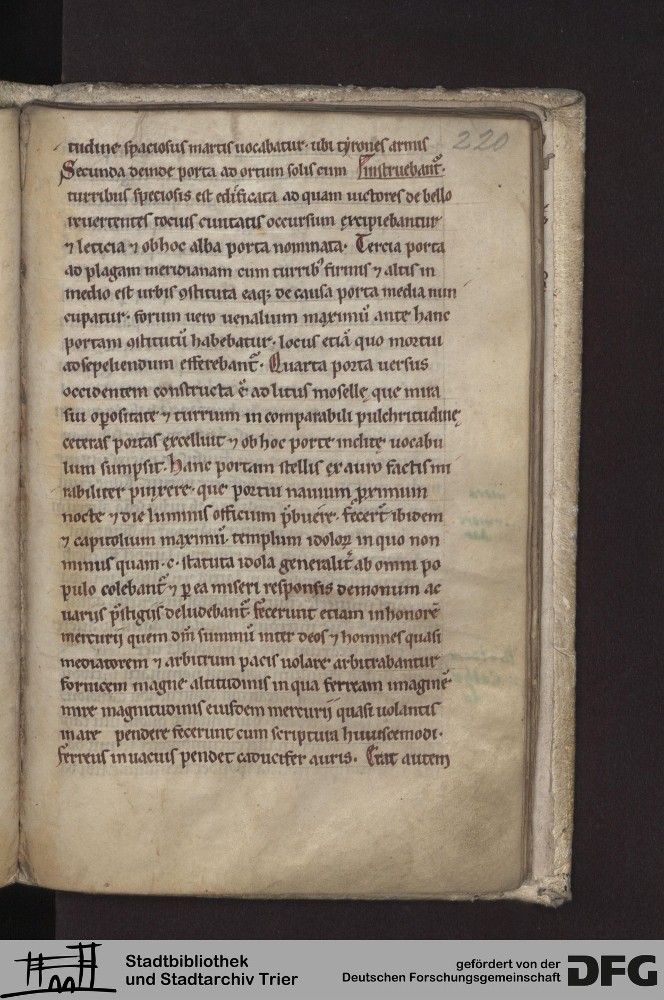 tudine spaciosus martis uocabatur· ubi tyrones armis
220
Secunda deinde porta ad ortum solis cum instruebant᷑·
turribus speciosis est edificata ad quam uictores de bello
reuertentes tocius ciuitatis occursum excipiebantur
⁊ leticia ⁊ ob hoc alba porta nominata· Tercia porta
ad plagam meridianam cum turrib᷒ firmis ⁊ altis in
medio est urbis ꝯstituta eaq; de causa porta media nun
cupatur· forum uero uenalium maximū ante hanc
portam ꝯstitutū habebatur· locus etiā quo mortui
ad sepeliendum efferebant᷑· Quarta porta uersus
occidentem constructa ē ad litus mosellę que mira
sui oꝑositate ⁊ turrium in comparabili pulchritudinę
ceteras portas excellunt ⁊ ob hoc porte inclitę uocabu
lum sumpsit· Hanc portam stellis ex auro factis mi
rabiliter pinxere· que portui nauium ꝓximum
nocte ⁊ die luminis officium p̄buere· fecer̄t ibidem
⁊ capitolium maximū· templum idoloꝝ in quo non
minus quam ·c· statuta idola generalit᷑ ab omni po
pulo colebant᷑ ⁊ ꝑ ea miseri responsis demonum ac
uariis p̄stigiis deludebant᷑ fecerunt etiam in honorē
mercurij quem dm̄ summū inter deos ⁊ homines quasi
mediatorem ⁊ arbitrum pacis uolare arbitrabantur
fornicem magne altitudinis in qua ferream imaginē
mire magnitudinis eiusdem mercurij quasi uolantis
in are pendere fecerunt cum scriptura huiuscemodi·
ferreus in uacuis pendet caducifer auris· Erat autem
Stadtbibliothek
und Stadtarchiv Trier
gefördert von der
Deutschen Forschungsgemeinschaft
DFG